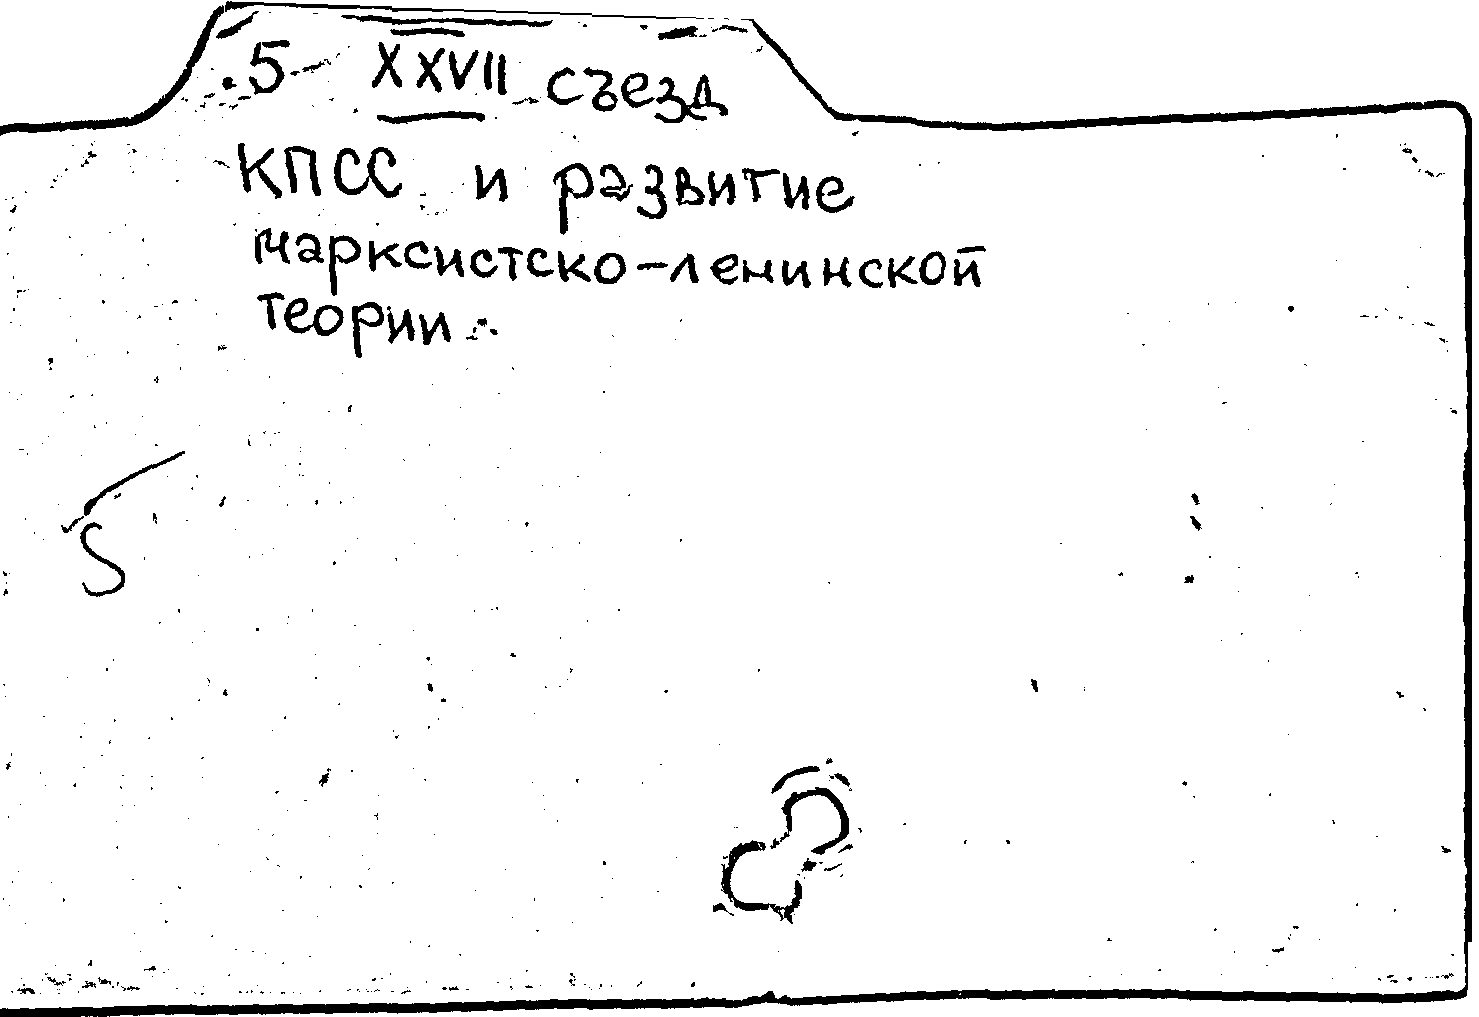 .5 XXVII съезд
КПСС и развитие
марксистско-ленинской
теории.
5